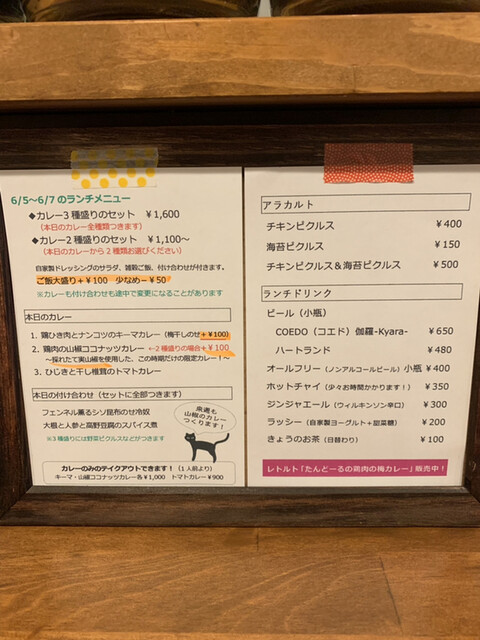 6/5～6/7のランチメニュー
◆カレー3種盛りのセット ￥1,600
（本日のカレー全種類つきます）
◆カレー2種盛りのセット ￥1,100～
（本日のカレーから2種類お選びください）
自家製ドレッシングのサラダ、雑穀ご飯、付け合わせが付きます。
ご飯大盛り＋￥100 少なめ－￥50
※カレーも付け合わせも途中で変更になることがあります
本日のカレー
1. 鶏ひき肉とナンコツのキーマカレー（梅干しのせ＋￥100）
2. 鶏肉の山椒ココナッツカレー ←2種盛りの場合＋￥100
～採れたて実山椒を使用した、この時期だけの限定カレー！～
3. ひじきと干し椎茸のトマトカレー
本日の付け合わせ（セットに全部つきます）
フェンネル薫るシソ昆布のせ冷奴
大根と人参と高野豆腐のスパイス煮
※3種盛りには野菜ピクルスなどがつきます
来週も
山椒のカレー
つくります！
カレーのみのテイクアウトできます！（1人前より）
キーマ・山椒ココナッツカレー各￥1,000 トマトカレー￥900
アラカルト
チキンピクルス ￥400
海苔ピクルス ￥150
チキンピクルス＆海苔ピクルス ￥500
ランチドリンク
ビール（小瓶）
COEDO（コエド）伽羅-Kyara- ￥650
ハートランド ￥480
オールフリー（ノンアルコールビール）小瓶 ￥400
ホットチャイ（少々お時間かかります！） ￥350
ジンジャエール（ウィルキンソン辛口） ￥300
ラッシー（自家製ヨーグルト＋甜菜糖） ￥200
きょうのお茶（日替わり） ￥100
レトルト「たんどーるの鶏肉の梅カレー」販売中！